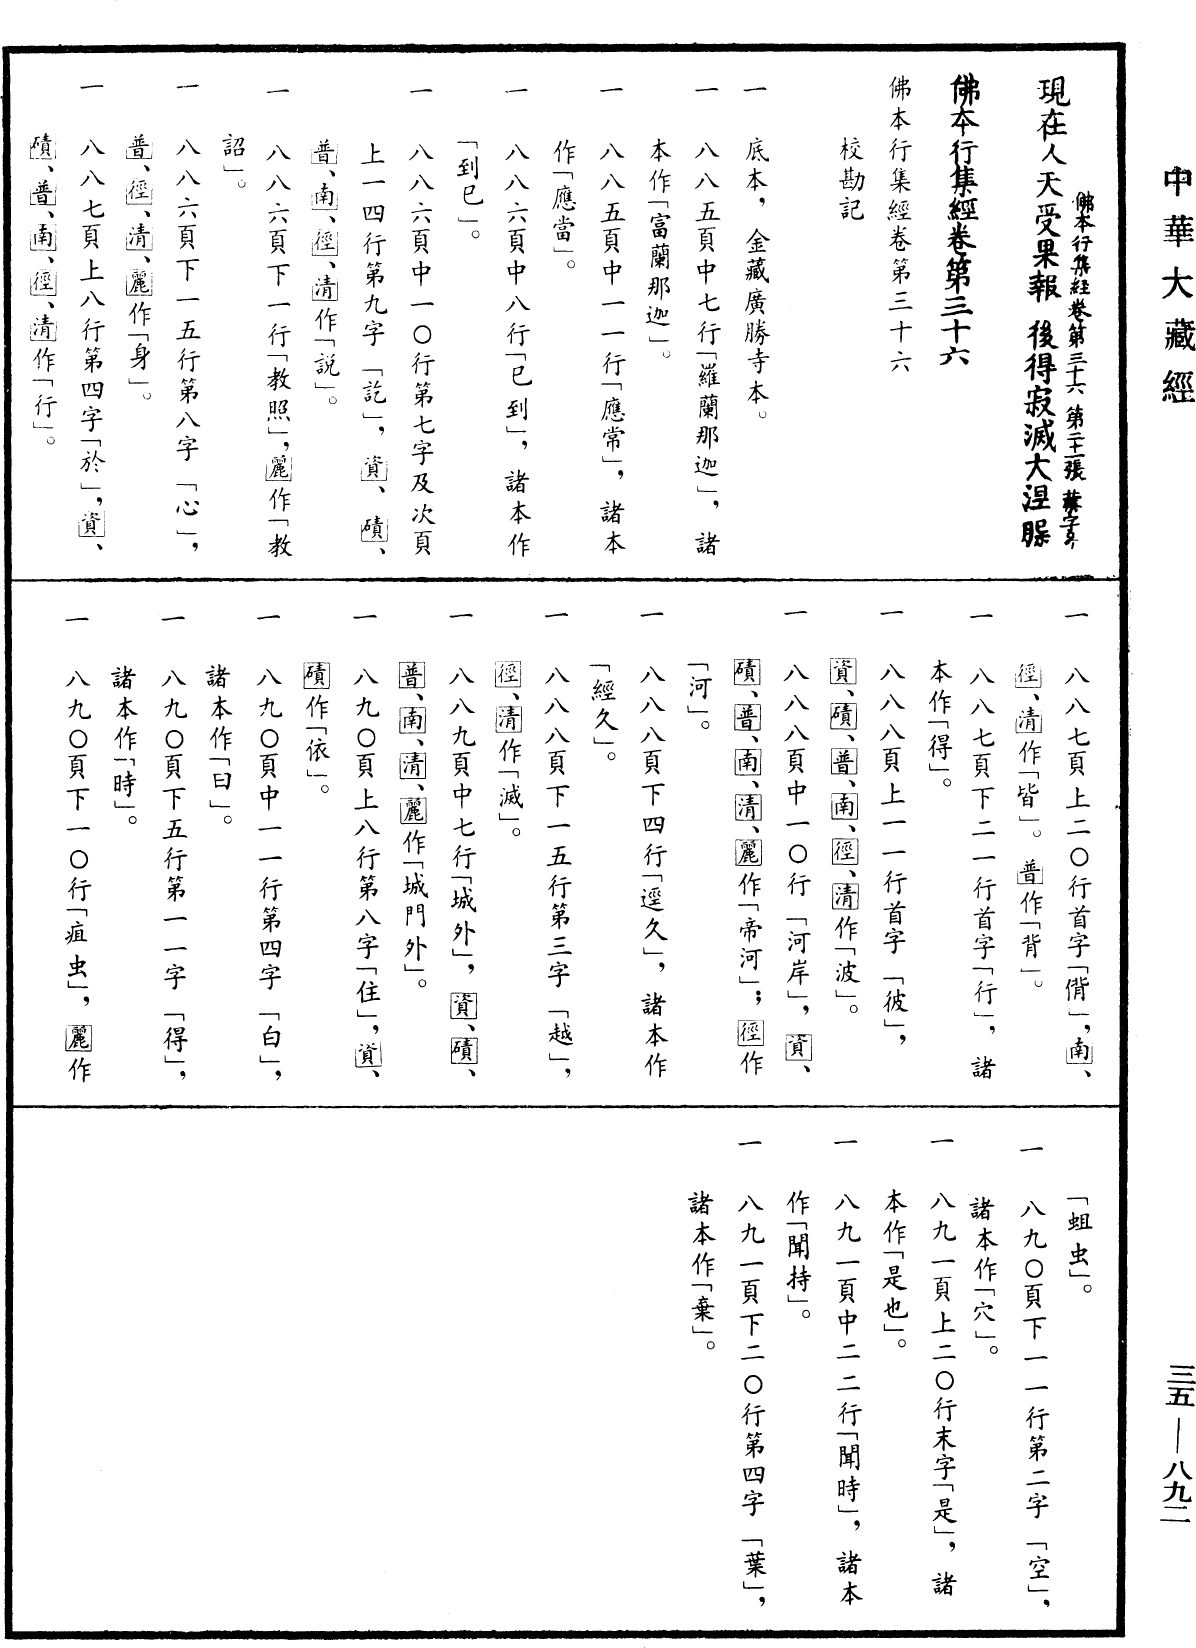 中華大藏經
現在人天受果報　後得寂滅大涅槃
佛本行集經卷第三十六　第二十一張
佛本行集經卷第三十六
佛本行集經卷第三十六
校勘記
一　底本，金藏廣勝寺本。
一　八八五頁中七行「羅蘭那迦」，諸
本作「富蘭那迦」。
一　八八五頁中一一行「應常」，諸本
作「應當」。
一　八八六頁中八行「已到」，諸本作
「到已」。
一　八八六頁中一〇行第七字及次頁
上一四行第九字「訖」，資、磧、
普、南、徑、清作「説」。
一　八八六頁下一行「教照」，麗作「教
詔」。
一　八八六頁下一五行第八字「心」，
普、徑、清、麗作「身」。
一　八八七頁上八行第四字「於」，資、
磧、普、南、徑、清作「行」。
一　八八七頁上二〇行首字「偝」，南、
徑、清作「皆」。普作「背」。
一　八八七頁下二一行首字「行」，諸
本作「得」。
一　八八八頁上一一行首字「彼」，
資、磧、普、南、徑、清作「波」。
一　八八八頁中一〇行「河岸」，資、
磧、普、南、清、麗作「帝河」；徑作
「河」。
一　八八八頁下四行「逕久」，諸本作
「經久」。
一　八八八頁下一五行第三字「越」，
徑、清作「滅」。
一　八八九頁中七行「城外」，資、磧、
普、南、清、麗作「城門外」。
一　八九〇頁上八行第八字「住」，資、
磧作「依」。
一　八九〇頁中一一行第四字「白」，
諸本作「曰」。
一　八九〇頁下五行第一一字「得」，
諸本作「時」。
一　八九〇頁下一〇行「疽虫」，麗作
「蛆虫」。
一　八九〇頁下一一行第二字「空」，
諸本作「穴」。
一　八九一頁上二〇行末字「是」，諸
本作「是也」。
一　八九一頁中二二行「聞時」，諸本
作「聞持」。
一　八九一頁下二〇行第四字「葉」，
諸本作「棄」。
三五—八九二